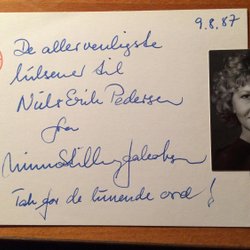 9.8.87
De allervenligste
hilsener til
Niels Erik Pedersen
fra
Minna Stilling Jakobsen
Tak for de lunende ord!